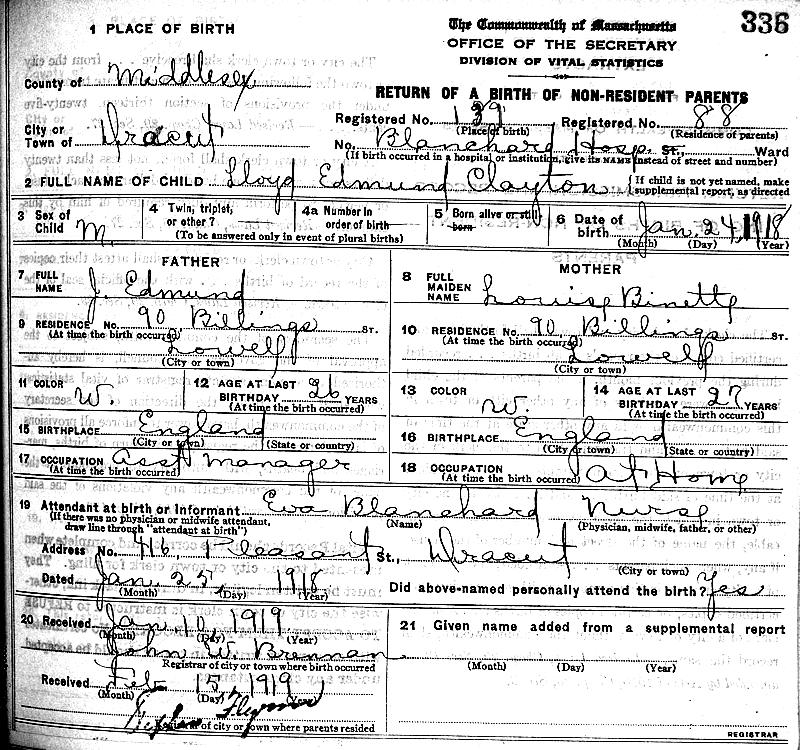 336
1 PLACE OF BIRTH
The Commonwealth of Massachusetts
OFFICE OF THE SECRETARY
DIVISION OF VITAL STATISTICS
County of Middlesex
RETURN OF A BIRTH OF NON-RESIDENT PARENTS
City or Town of Dracut
Registered No. 139 (Place of birth) Registered No. 88 (Residence of parents)
No. Blanchard Hosp. St., Ward
(If birth occurred in a hospital or institution, give its NAME instead of street and number)
2 FULL NAME OF CHILD Lloyd Edmund Clayton { If child is not yet named, make supplemental report, as directed
3 Sex of Child M.
4 Twin, triplet, or other?
4a Number in order of birth
(To be answered only in event of plural births)
5 Born alive or still-born
6 Date of birth Jan. 24, 1918
(Month) (Day) (Year)
FATHER
7 FULL NAME J. Edmund
MOTHER
8 FULL MAIDEN NAME Louise Binette
9 RESIDENCE No. 90 Billings ST.
(At time the birth occurred) Lowell
(City or town)
10 RESIDENCE No. 90 Billings ST.
(At time the birth occurred) Lowell
(City or town)
11 COLOR W.
12 AGE AT LAST BIRTHDAY 26 YEARS
(At time the birth occurred)
13 COLOR W.
14 AGE AT LAST BIRTHDAY 27 YEARS
(At time the birth occurred)
15 BIRTHPLACE England
(City or town) (State or country)
16 BIRTHPLACE England
(City or town) (State or country)
17 OCCUPATION Asst Manager
(At time the birth occurred)
18 OCCUPATION At Home
(At time the birth occurred)
19 Attendant at birth or Informant Eva Blanchard Nurse
(If there was no physician or midwife attendant, draw line through "attendant at birth")
(Name) (Physician, midwife, father, or other)
Address No. 416 Pleasant St., Dracut
(City or town)
Dated Jan. 25, 1918
(Month) (Day) (Year)
Did above-named personally attend the birth? Yes
20 Received Jan 10, 1919
(Month) (Day) (Year)
John W. Brennan
Registrar of city or town where birth occurred
Received Feb 15, 1919
(Month) (Day) (Year)
Stephen Flynn
Registrar of city or town where parents resided
21 Given name added from a supplemental report
(Month) (Day) (Year)
REGISTRAR